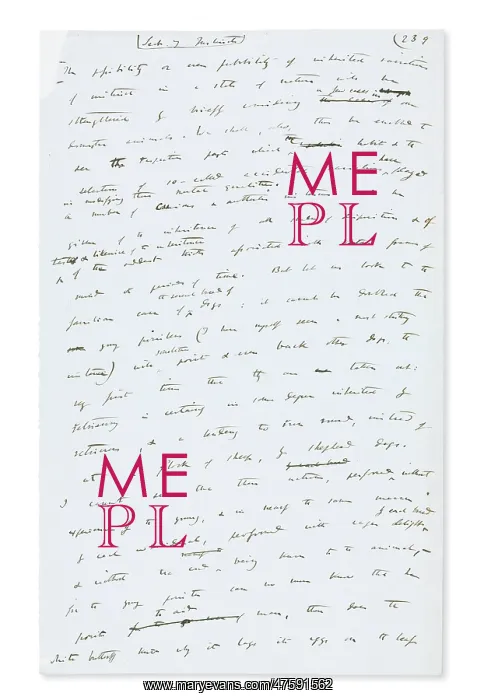 Sect. 7 Instincts (239
The possibility or even probability of inherited variations
of instinct in a state of nature will be
strengthened by briefly considering a few cases in our
domestic animals. We shall, also, thus be enabled to
see the respective parts which habit & the
selection of so-called accidental variations have played
in modifying their mental qualities.
a number of curious & authentic instances can be
given of the inheritance of all shades of disposition & of
tastes & likewise
of the oddest tricks associated with frames of
mind or periods of time. But let us look to the
familiar case of the several breeds of dogs: it cannot be doubted that
young pointers (I have myself seen a most striking
instance) will sometimes point & even back other dogs the
very first time that they are taken out:
retrieving is certainly in some degree inherited by
retrievers; & a tendency to run round, instead of
at a flock of sheep, by shepherd dogs.
I cannot see that these actions, performed without
experience by the young, & in nearly the same manner
by each individual, performed with eager delight by each breed
& without the end being known to the animal,—
for the young pointer can no more know that he
points to aid man, than does the
white butterfly know why it lays its eggs on the leaf
ME
PL
ME
PL
www.maryevans.com/47591562